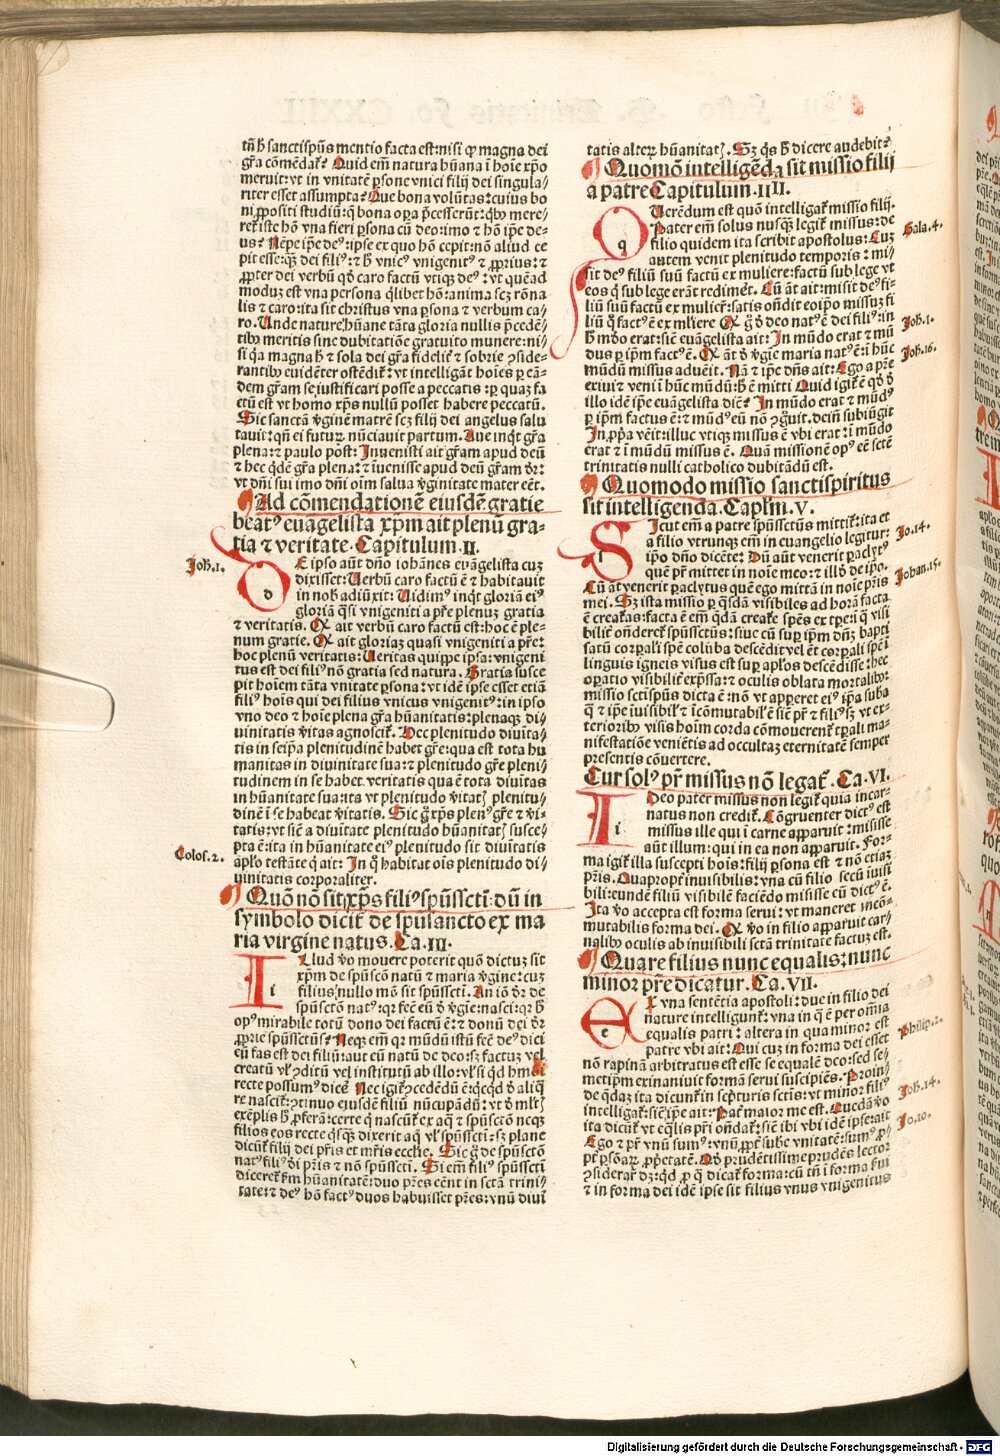 tñ h̄ sanctisp̄us mentio facta est: nisi qꝫ magna dei
gr̄a cōmēdat̄? Quid em̄ natura hūana ī hoīe xp̄o
meruit: vt in vnitatē ꝑsone vnici filij dei singula-
riter esset assumpta? Que bona volūtas: cuius bo
ni ꝓpositi studiū: q̄ bona oꝑa p̄cesserūt: qbꝰ mere-
ret̄ iste hō vna fieri ꝑsona cū deo: imo ⁊ hō ip̄e de-
us? Nēpe ip̄e deꝰ: ipse ex quo hō cepit: nō aliud ce
pit esse: qꝫ dei filiꝰ: ⁊ h̄ vnicꝰ vnigenitꝰ ⁊ ꝓpriꝰ: ⁊
ꝓpter dei verbū qd̄ caro factū vtiqꝫ deꝰ: vt quēad
moduꝫ est vna persona qlibet hō: anima scꝫ rōna
lis ⁊ caro: ita sit christus vna ꝑsona ⁊ verbum ca-
ro. Unde nature hūane tāta gloria nullis p̄cedē-
tibꝰ meritis sine dubitatiōe gratuito munere: ni-
si qa magna h̄ ⁊ sola dei gr̄a fidelit̄ ⁊ sobrie ꝯside-
rantibꝰ euidēter ostēdit̄: vt intelligāt hoīes ꝑ eā-
dem gr̄am se iustificari posse a peccatis: ꝑ quaꝫ fa-
ctū est vt homo xp̄s nullū posset habere peccatū.
Sic sanctā v̄ginē matrē scꝫ filij dei angelus salu
tauit: qn̄ ei futurꝫ nūciauit partum. Aue inqt gr̄a
plena: ⁊ paulo pōst: Inuenisti ait gr̄am apud deū
⁊ hec qdē gr̄a plena: ⁊ īuenisse apud deū gr̄am dr̄:
vt dn̄i sui imo dn̄i oīm salua v̄ginitate mater eēt.
Ad cōmendationē eiusdē gratie
beatꝰ euāgelista xp̄m ait plenū gra-
tia ⁊ veritate. Capitulum. II.
Joh̄. 1.
E ipso aūt dn̄o iohānes euāgelista cuꝫ
dixisset: Uerbū caro factū ē ⁊ habitauit
in nob̄ adiūxit: Uidimꝰ inqt gloriā eiꝰ
gloriā q̄si vnigeniti a pr̄e plenuꝫ gratia
⁊ veritatis. Qꝫ ait verbū caro factū est: hoc ē ple-
num gratie. Qꝫ ait gloriaꝫ quasi vnigeniti a pr̄e:
hoc plenū veritatis: Ueritas quippe ip̄a: vnigeni
tus est dei filiꝰ nō gratia sed natura. Gratia susce
pit hoīem tāta vnitate ꝑsona: vt idē ipse esset etiā
filiꝰ hois qui dei filius vnicus vnigenitꝰ: in ipso
vno deo ⁊ hoīe plena gr̄a hūanitatis: plenaqꝫ di-
uinitatis v̄itas agnoscit̄. Hec plenitudo diuīta-
tis in seip̄a plenitudinē habet gr̄e: qua est tota hu
manitas in diuinitate sua: ⁊ plenitudo gr̄e pleni-
tudinem in se habet veritatis qua ē tota diuītas
in hūanitate sua: ita vt plenitudo v̄itatꝭ plenitu-
dinē ī se habeat v̄itatis. Sic g̊ xp̄s plenꝰ gr̄e ⁊ vi-
tatis: vt siē a diuītate plenitudo hūanitatꝭ susce-
pta ē: ita in hūanitate eiꝰ plenitudo sit diuītatis
apl̄o testāte q̄ ait: In q̊ habitat oīs plenitudo di-
uinitatis corporaliter.
Colos. 2.
Quō nō sit xp̄s filiꝰ spūssctī: dū in
symbolo dicit̄ de spūsancto ex ma
ria virgine natus. Ca. III.
Llud v̊o mouere poterit quō dictuꝫ sit
xp̄m de spūscō natū ⁊ maria v̄gine: cuꝫ
filius nullo mō sit spūssctī. An iō dr̄ de
spūsctō natꝰ: qr fecē eū d̄ v̄gīe nasci: qr h̄
opꝰ mirabile totū dono dei factū ē: ⁊ donū dei dr̄
ꝓprie spūssctūs? Neqꝫ em̄ qr mūdū istū fec̄ deꝰ dici
eū fas est dei filiū: aut eū natū de deo: sꝫ factuꝫ vel
creatū vl̓ ꝯditū vel institutū ab illo: vl̓ si qd h̄mōi
recte possumꝰ dicē Nec igit̄ ꝯcedēdū ē: qcqd d̄ aliq̄
re nascit̄: ꝯtinuo eiusdē filiū nūcupādū: vt d̄ mlt̄ꝭ
exēplis h̄ ꝓferā: certe q̄ nascūt̄ ex aq̄ ⁊ spūsctō neqꝫ
filios eos recte qsqꝫ dixerit aq̄ vl̓ spūssctī: sꝫ plane
dicūt̄ filij dei pr̄is ⁊ mr̄is eccl̄ie. Sic g̊ de spūsctō
natꝰ filiꝰ d̄i pr̄is ⁊ nō spūssctī. Si em̄ filiꝰ spūssctī
diceret̄ fm hūanitatē: duo pr̄es eēnt in sctā trini-
tate: ⁊ deꝰ hō factꝰ duos habuisset pr̄es: vnū diui
tatis alterꝫ hūanitatꝭ. Sꝫ qs h̄ dicere audebit?
Quomō intelligēda sit missio filij
a patre Capitulum. IIII.
Uerēdum est quō intelligat̄ missio filij.
Pater em̄ solus nusqꝫ legit̄ missus: de
filio quidem ita scribit apostolus: Cuꝫ
autem venit plenitudo temporis: mi-
sit deꝰ filiū suū factū ex muliere: factū sub lege vt
eos q̄ sub lege erāt redimēt. Cū āt ait: misit deꝰ fi-
liū suū factū ex muliere: satis oñdit eoip̄o missuꝫ fi
liū q̊ factꝰ ē ex mliere Qꝫ g̊ d̄ deo natꝰ ē dei filiꝰ: in
h̄ mūdo erat: siē euāgelista ait: In mūdo erat ⁊ mū
dus ꝑ ip̄m factꝰ ē. Qꝫ āt d̄ v̄gie maria natꝰ ē: ī hūc
mūdū missus aduēit. Nā ⁊ ip̄e dn̄s ait: Ego a pr̄e
exiui ⁊ veni ī hūc mūdū: h̄ ē mitti Quid igit̄ ē qd̄ d̄
illo idē ip̄e euāgelista dic̄? In mūdo erat ⁊ mūdꝰ
ꝑ ip̄m factus ē: ⁊ mūdꝰ eū nō ꝯgnuit. deīn subiūgit
In ꝓp̄a vēit: illuc vtiqꝫ missus ē vbi erat: ī mūdo
erat ⁊ ī mūdū missus ē. Quā missionē opꝰ eē sctē
trinitatis nulli catholico dubitādū est.
Gala. 4.
Joh̄. 1.
Joh̄. 16.
Quomodo missio sanctispiritus
sit intelligenda. Capl̄m. V.
Icut em̄ a patre spūssctūs mittit̄: ita et
a filio vtrunqꝫ em̄ in euangelio legitur:
ip̄o dn̄o dicēte: Dū aūt venerit paclytꝰ
quē pr̄ mittet in noīe meo: ⁊ illd̄ de ip̄o.
Cū āt venerit paclytus quē ego mittā in noīe pr̄is
mei. Sꝫ ista missio ꝑ qsdā visibiles ad horā facta
ē creat̄as: facta ē em̄ qdā creat̄e spēs ex tꝑe: ī q̄ visi
bilit̄ oñderet̄ spūssctūs: siue cū suꝑ ip̄m dn̄ꝫ bapti
satū corꝑali spē colūba descēdit vel ēt corꝑali spē ī
linguis igneis visus est suꝑ apl̄os descēdisse: hec
oꝑatio visibilit̄ exp̄ssa: ⁊ oculis oblata mortalibꝰ
missio sctīspūs dicta ē: nō vt apꝑeret eiꝰ ip̄a suba
q̄ ⁊ ip̄e īuisibil̓ ⁊ īcōmutabil̓ ē siē pr̄ ⁊ filiꝰ: sꝫ vt ex-
terioribꝰ visis hoīm corda cōmouerent̄ tꝑali ma-
nifestatiōe veniētis ad occultaꝫ eternitatē semper
presentis cōuertere.
Jo. 14.
Johan. 15.
Cur solꝰ pr̄ missus nō legat̄. Ca. VI.
Deo pater missus non legit̄ quia incar-
natus non credit̄. Cōgruenter dictꝰ est
missus ille qui ī carne apparuit: misisse
aūt illum: qui in ea non apparuit. For-
ma igit̄ illa suscepti hoīs: filij ꝑsona est ⁊ nō etiaꝫ
pr̄is. Quapropt̄ inuisibilis: vna cū filio secū inuisi
bili: eundē filiū visibilē faciēdo misisse cū dictꝰ ē.
Ita v̊o accepta est forma serui: vt maneret incō-
mutabilis forma dei. Qꝫ v̊o in filio apparuit car-
nalibꝰ oculis ab inuisibili sctā trinitate factuꝫ est.
Quare filius nunc equalis: nunc
minor predicatur. Ca. VII.
X vna sentētia apostoli: due in filio dei
nature intelligunt̄: vna in q̄ ē per omīa
equalis patri: altera in qua minor est
patre vbi ait: Qui cuꝫ in forma dei esset
nō rapinā arbitratus est esse se equalē deo: sed se-
metip̄m exinaniuit formā serui suscipiēs. Proin-
de qdaꝫ ita dicunt̄ in sc̄pturis sctis: vt minor filiꝰ
intelligat̄: siē ip̄e ait: Pat̄ maior me est. Quedā v̊o
ita dicūt̄ vt eqlis pr̄i oñdat̄: siē ibi vbi idē ipse: ait
Ego ⁊ pr̄ vnū sumꝰ: vnū ꝓpt̄ sube vnitatē: sumꝰ ꝓ-
pt̄ ꝑsōarꝫ ꝓp̄etatē. Qd̄ prudētissime prudēs lector
ꝯsiderat̄ dꝫ: qd ꝑ q̄ dicat̄ forma: cū tn̄ ī forma sui
⁊ in forma dei idē ipse sit filius vnus vnigenitus
Philip. 2.
Joh̄. 14.
Jo. 10.
Digitalisierung gefördert durch die Deutsche Forschungsgemeinschaft - DFG